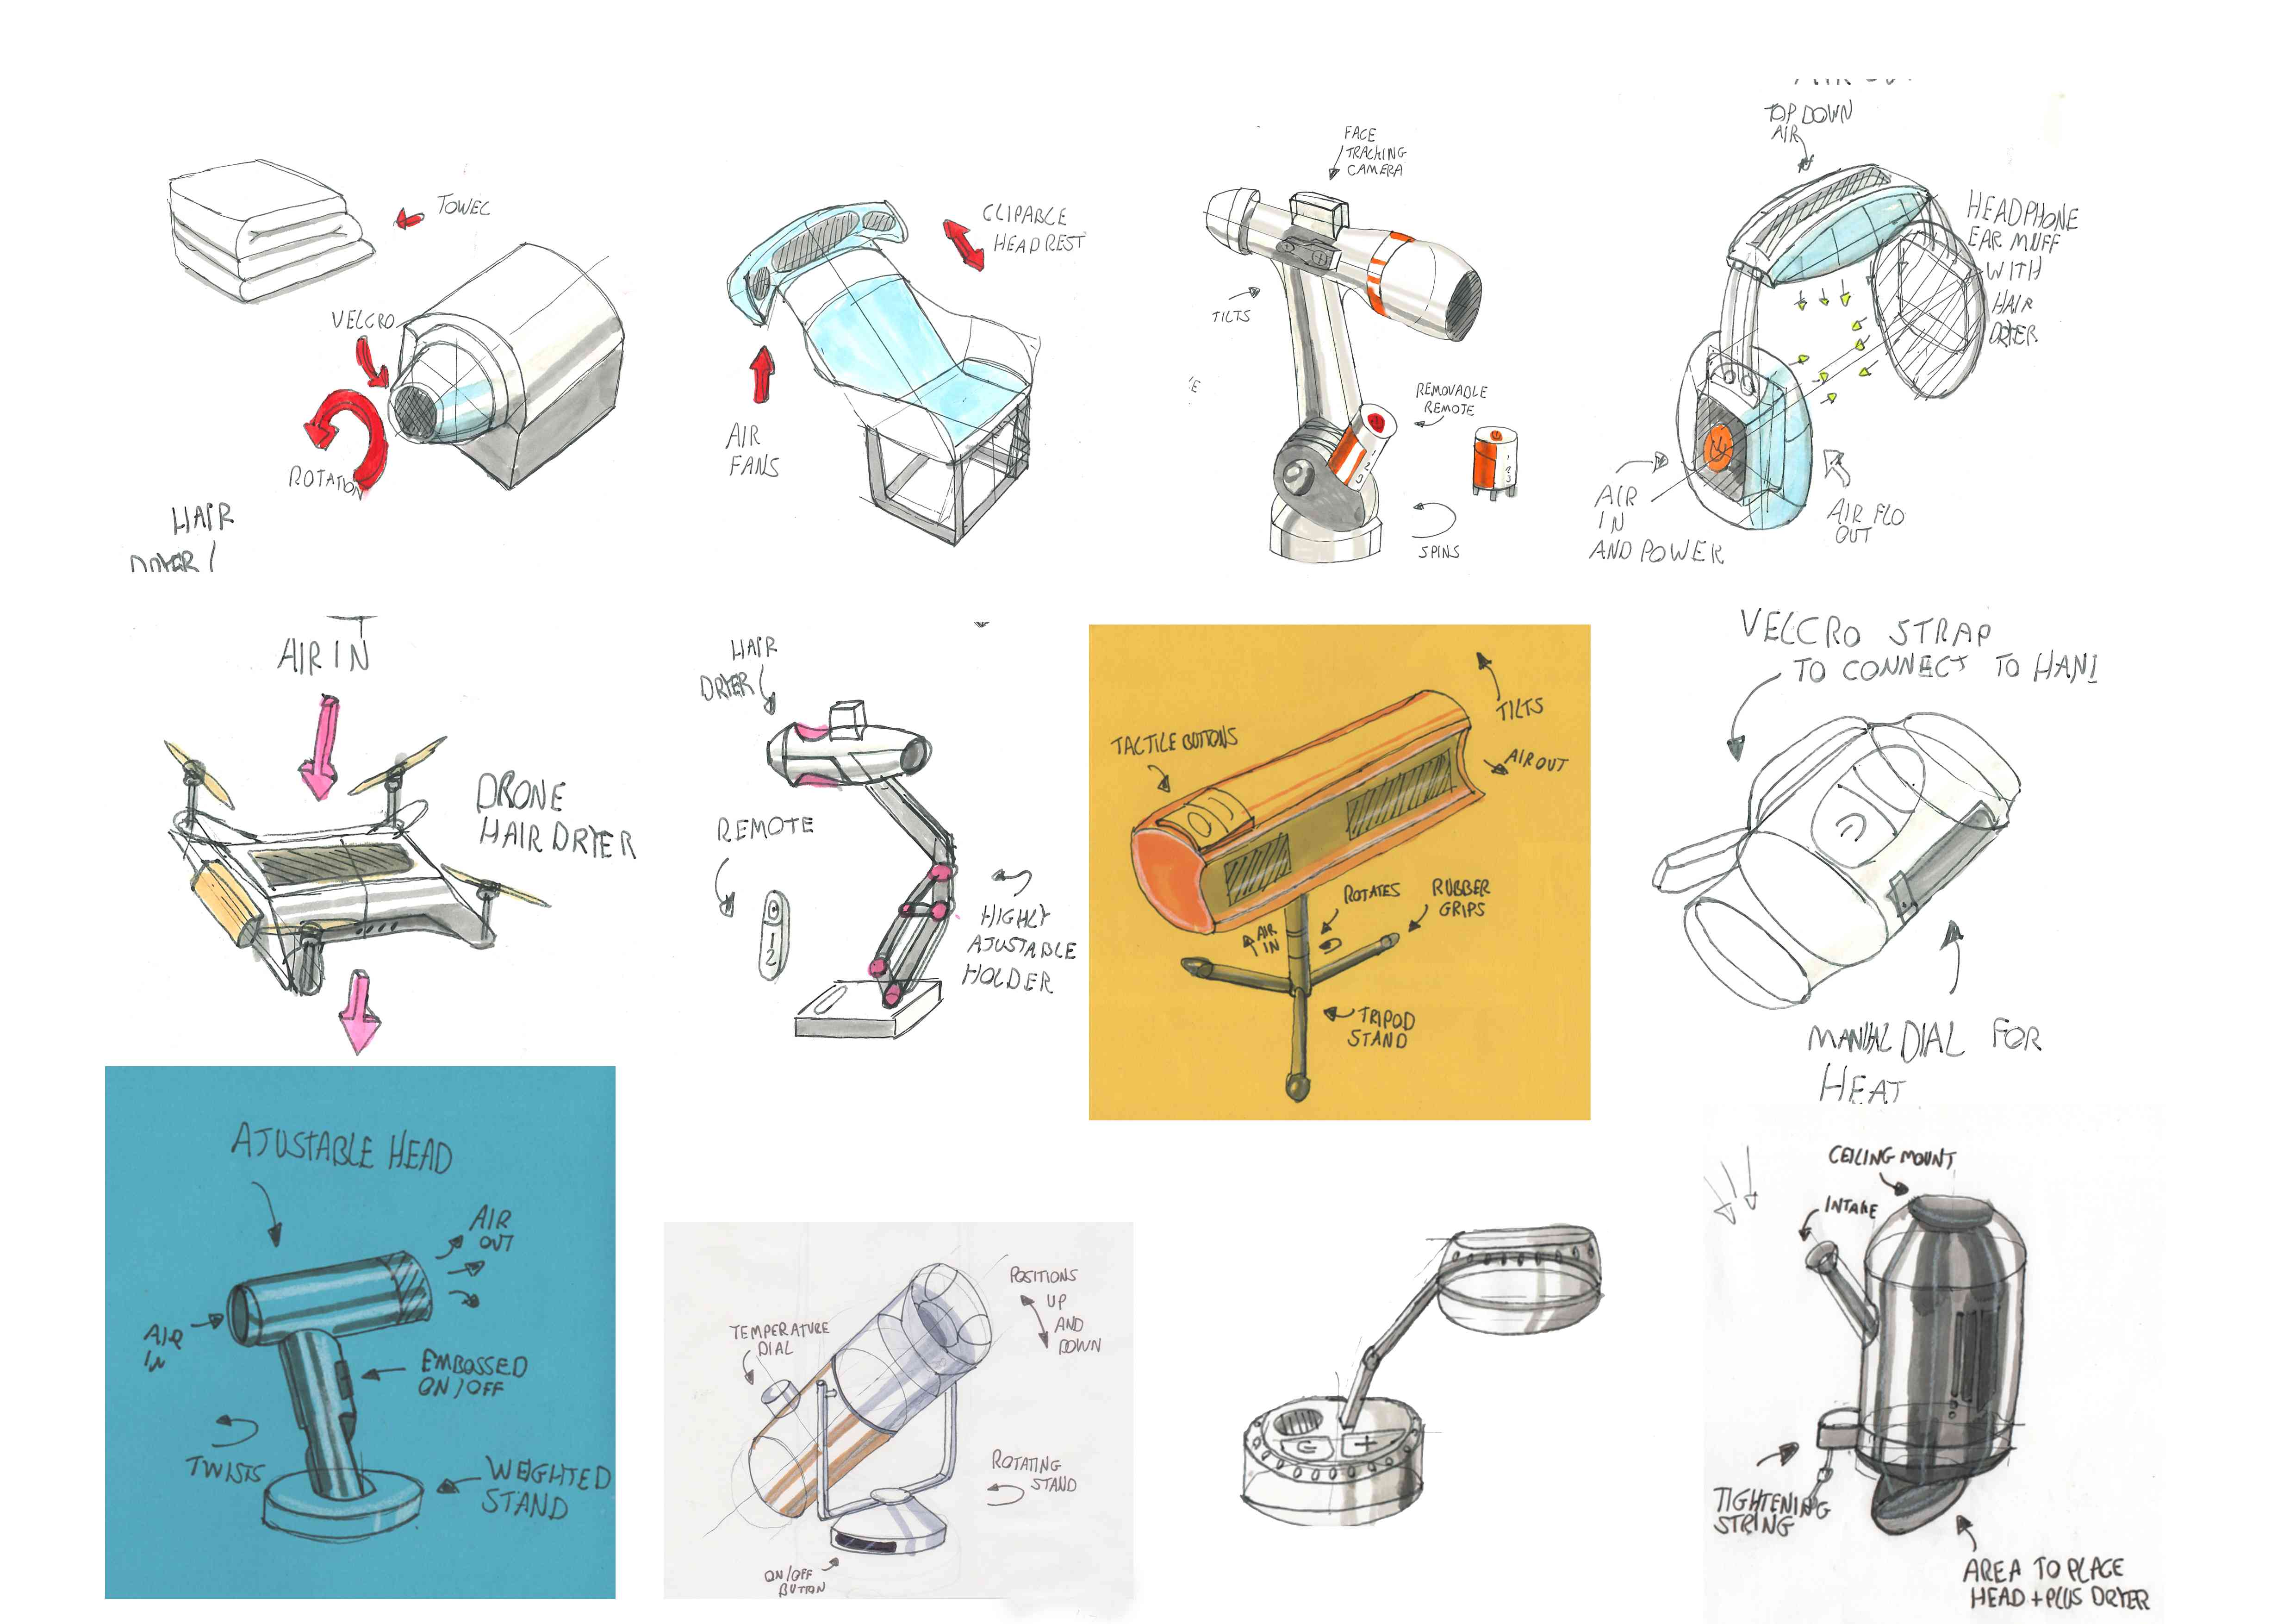 TOWEL
VELCRO
ROTATION
HAIR
DRYER
CLIPABLE
HEADREST
AIR
FANS
FACE
TRACHING
CAMERA
TILTS
REMOVABLE
REMOTE
1
2
3
1
2
3
SPINS
TOP DOWN
AIR
HEADPHONE
EAR MUFF
WITH
HAIR
DRYER
AIR
IN
AND POWER
AIR FLO
OUT
AIR IN
DRONE
HAIR DRYER
HAIR
DRYER
REMOTE
1
2
HIGHLY
AJUSTABLE
HOLDER
TILTS
TACTILE BUTTONS
AIR OUT
ROTATES
RUBBER
GRIPS
AIR
IN
TRIPOD
STAND
VELCRO STRAP
TO CONNECT TO HAN
MANUAL DIAL FOR
HEAT
AJUSTABLE HEAD
AIR
OUT
AIR
IN
EMBOSSED
ON/OFF
TWISTS
WEIGHTED
STAND
POSITIONS
UP
AND
DOWN
TEMPERATURE
DIAL
ROTATING
STAND
ON/OFF
BUTTON
CEILING MOUNT
INTAKE
TIGHTENING
STRING
AREA TO PLACE
HEAD + PLUS DRYER